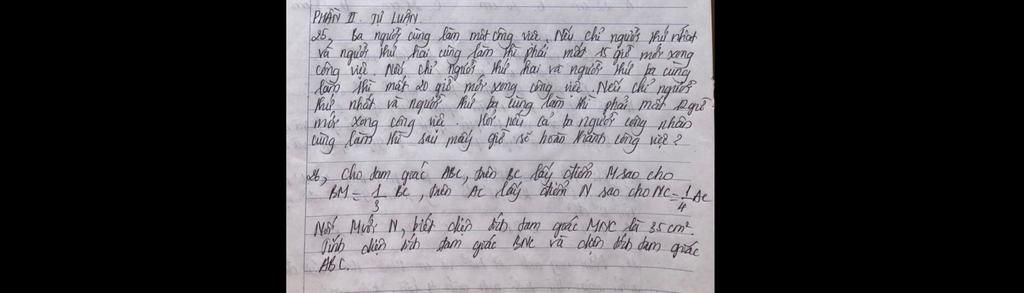 PHẦN II. TỰ LUẬN.
25, Ba người cùng làm một công việc. Nếu chỉ người thứ nhất
và người thứ hai cùng làm thì phải mất 15 giờ mới xong
công việc. Nếu chỉ người thứ hai và người thứ ba cùng
làm thì mất 20 giờ mới xong công việc. Nếu chỉ người
thứ nhất và người thứ ba cùng làm thì phải mất 12 giờ
mới xong công việc. Hỏi nếu cả ba người công nhân
cùng làm thì sau mấy giờ sẽ hoàn thành công việc?
26, Cho tam giác ABC, trên BC lấy điểm M sao cho
BM = 1/3 BC, trên AC lấy điểm N sao cho NC = 1/4 AC
Nối M với N, biết diện tích tam giác MNC là 35 cm².
Tính diện tích tam giác BNC và diện tích tam giác
ABC.